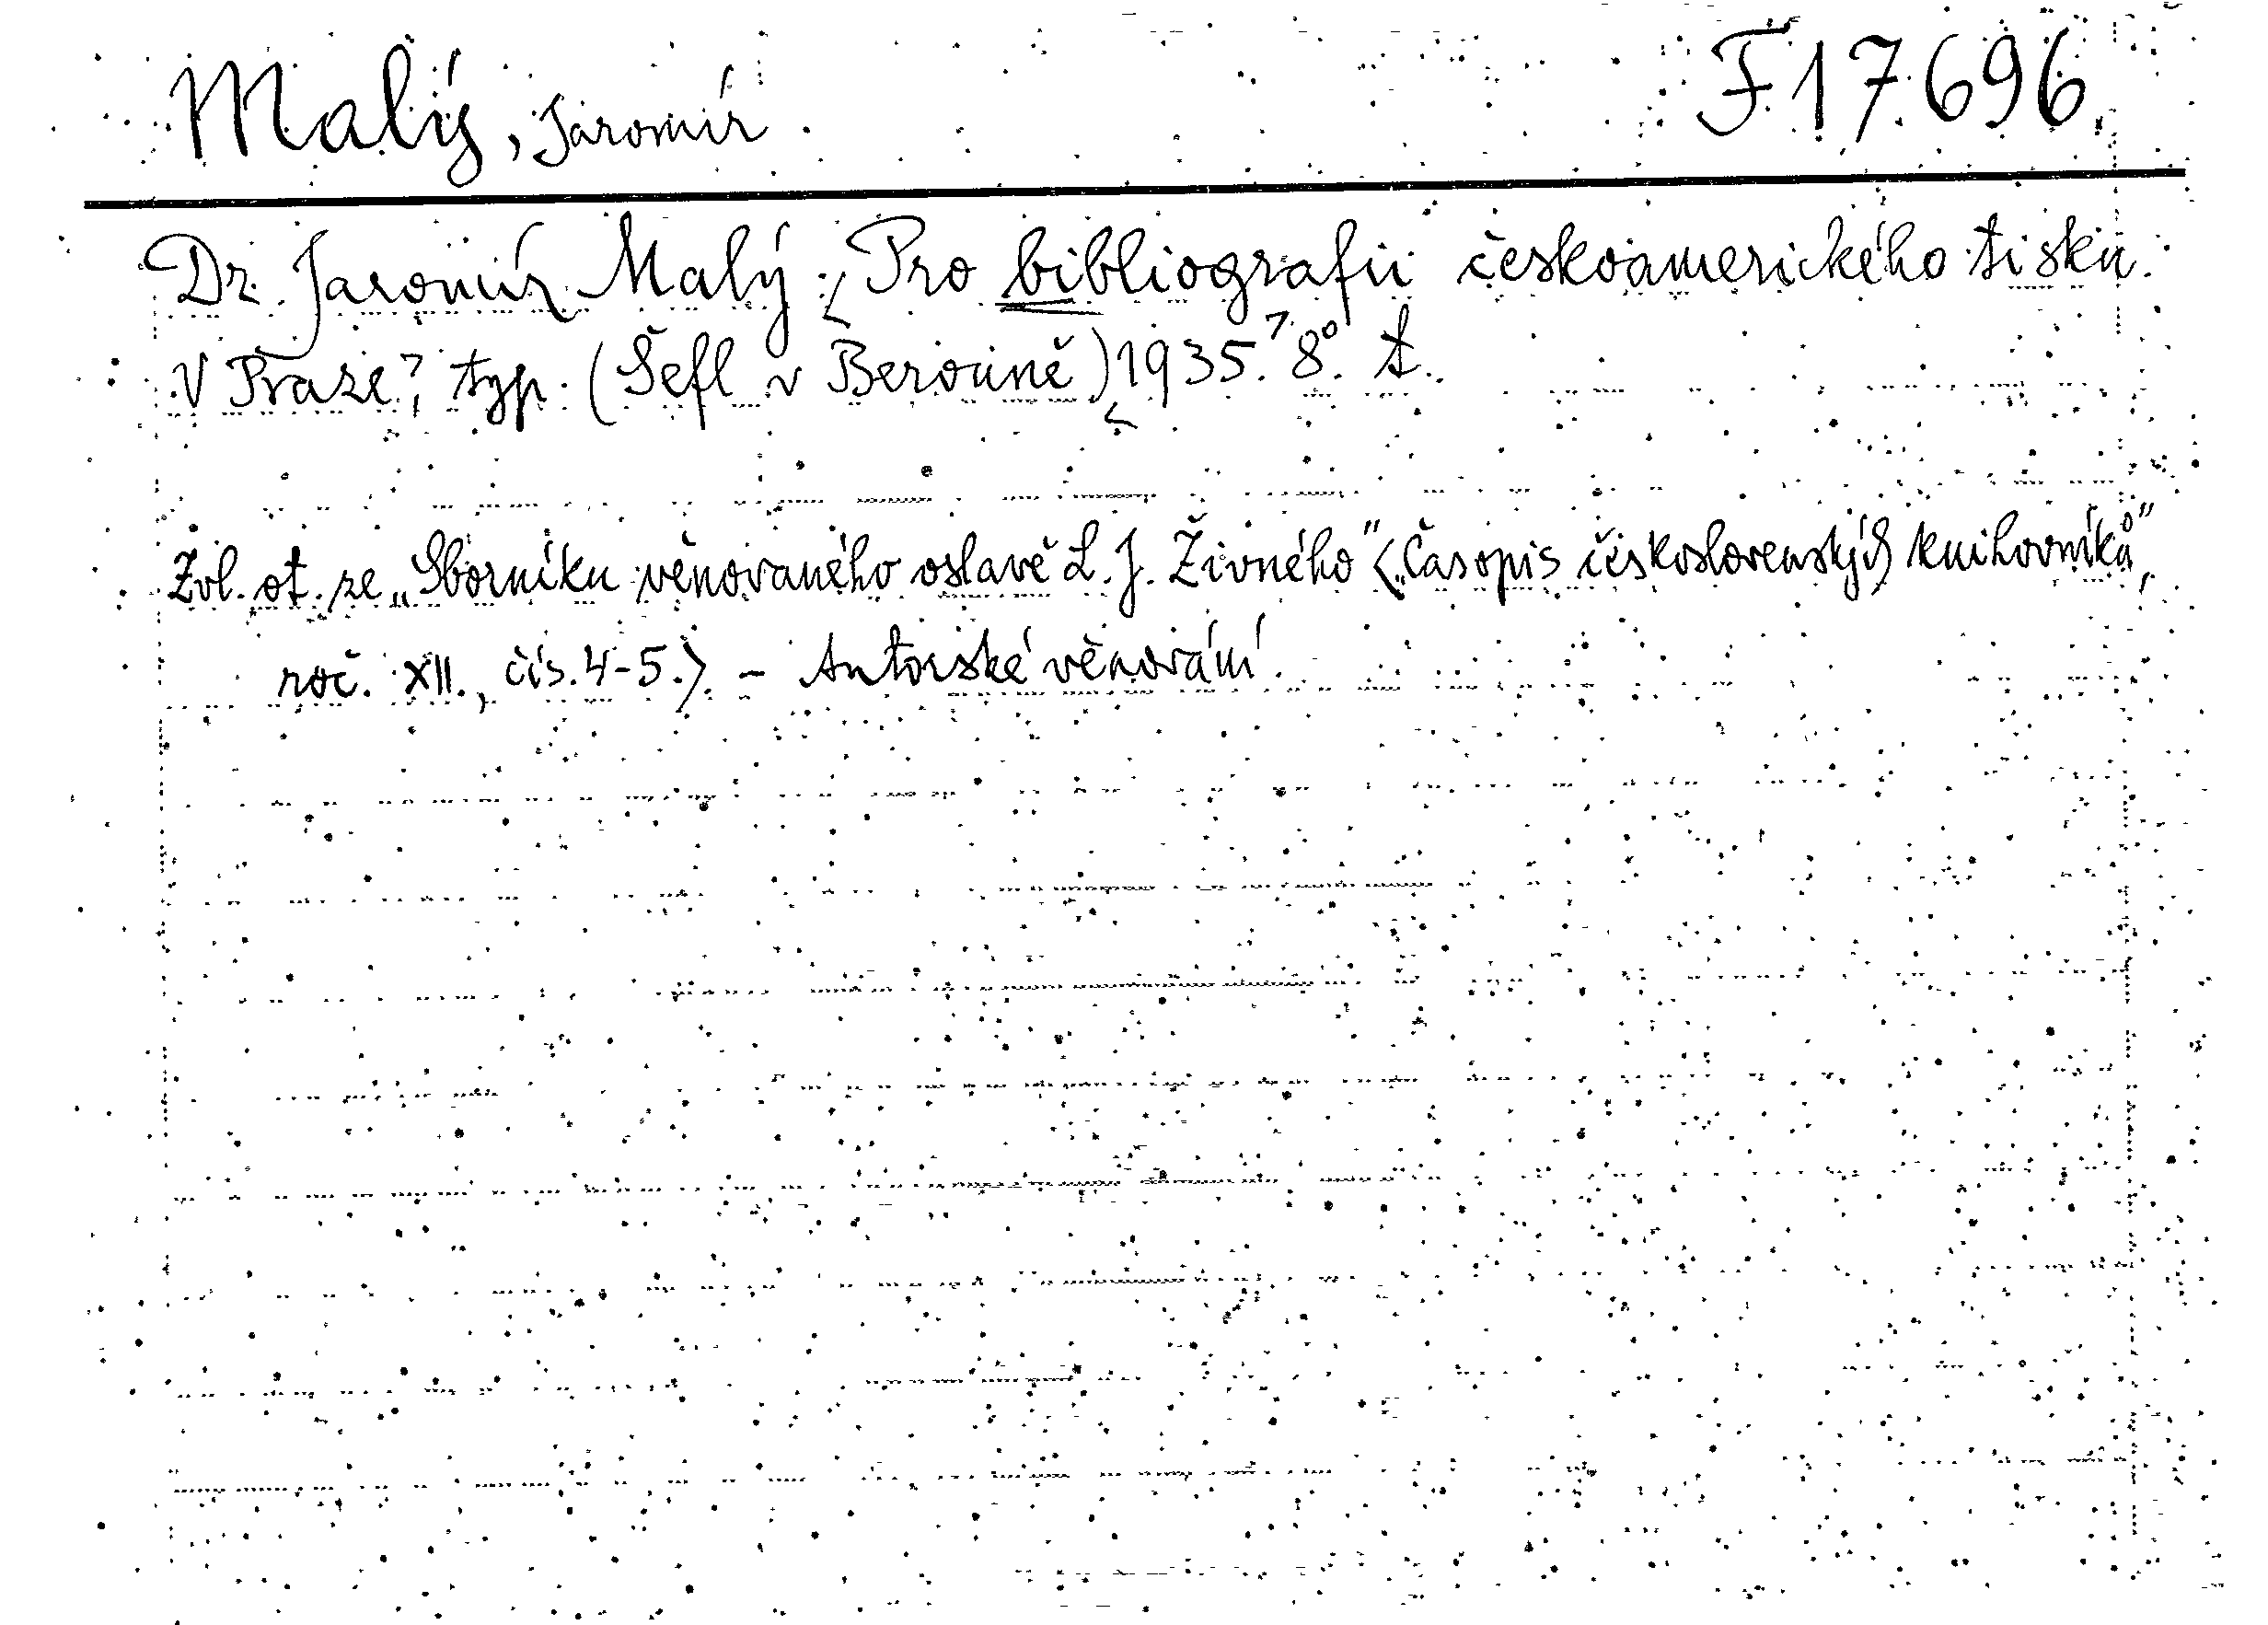 Malý, Jaromír
F 17.696
Dr. Jaromír Malý: Pro bibliografii českoamerického tisku.
V Praze, typ. (Šefl v Berouně) 1935. 8°. t.
Zvl. ot. ze „Sborníku věnovaného oslavě L. J. Živného“ <„Časopis československých knihovníků“,
roč. XII., čís. 4-5.> – Autorské věnování.